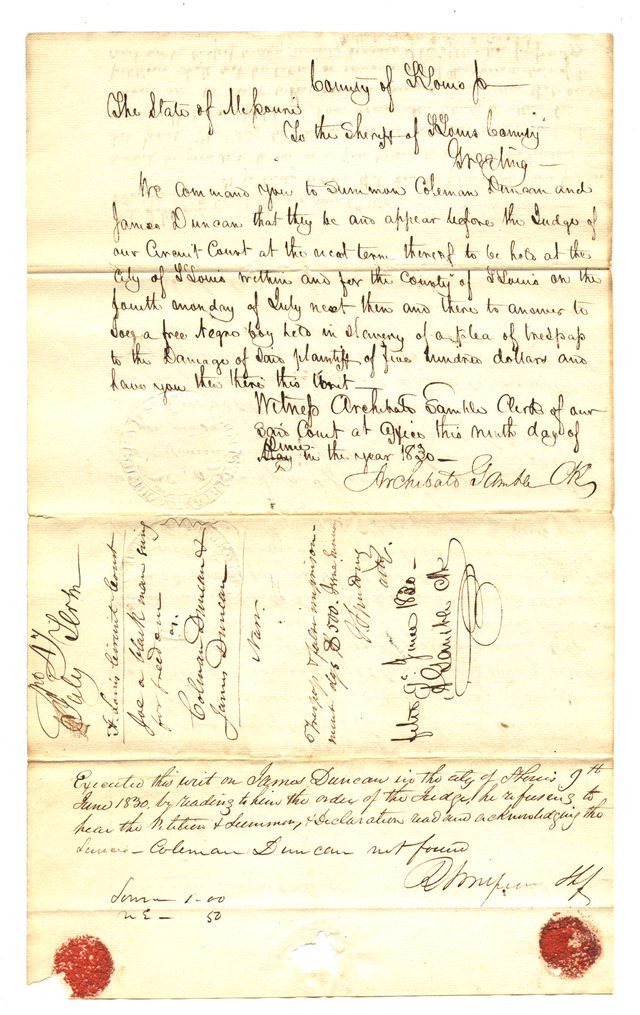 County of St Louis ss
The State of Missouri
To the Sheriff of St Louis County
Greeting
We command you to summon Coleman Duncan and
James Duncan that they be and appear before the Judge of
our Circuit Court at the next term thereof to be held at the
City of St Louis within and for the County of St Louis on the
fourth monday of July next then and there to answer to
Joe, a free Negro boy held in slavery of a plea of trespass
to the Damage of said plaintiff of five hundred dollars and
have you then there this writ
Witness Archibald Gamble Clerk of our
said Court at office this ninth day of
June
May in the year 1830
Archibald Gamble Clk
July Term
St Louis Circuit Court
Joe a black man suing
for freedom
vs.
Coleman Duncan &
James Duncan
Narr.
Trespass & false imprison-
ment dgs $500.
atty.
June 1830
A Gamble Clk
Executed this writ on James Duncan in the city of St Louis 9th
June 1830, by reading to him the order of the Judge, he refusing to
hear the Petition & Summons, & Declaration read and acknowledging the
Service - Coleman Duncan not found
Shff
1-00
N E - 50